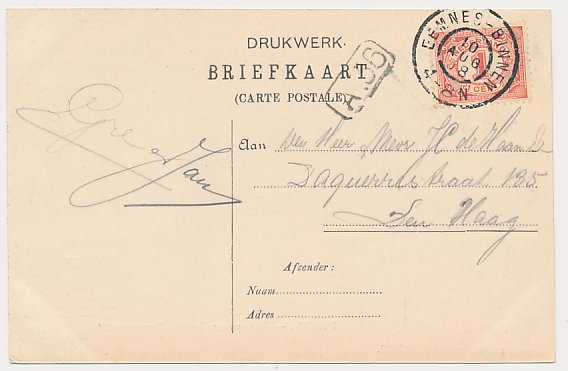 DRUKWERK.
BRIEFKAART
(CARTE POSTALE)
A 36
EEMNES-BINNEN
10 AUG 8
4-8N
CENT
Jan
Aan Den Heer Mevr JC de Haan
Daguerrestraat 135
Den Haag
Afzender:
Naam
Adres